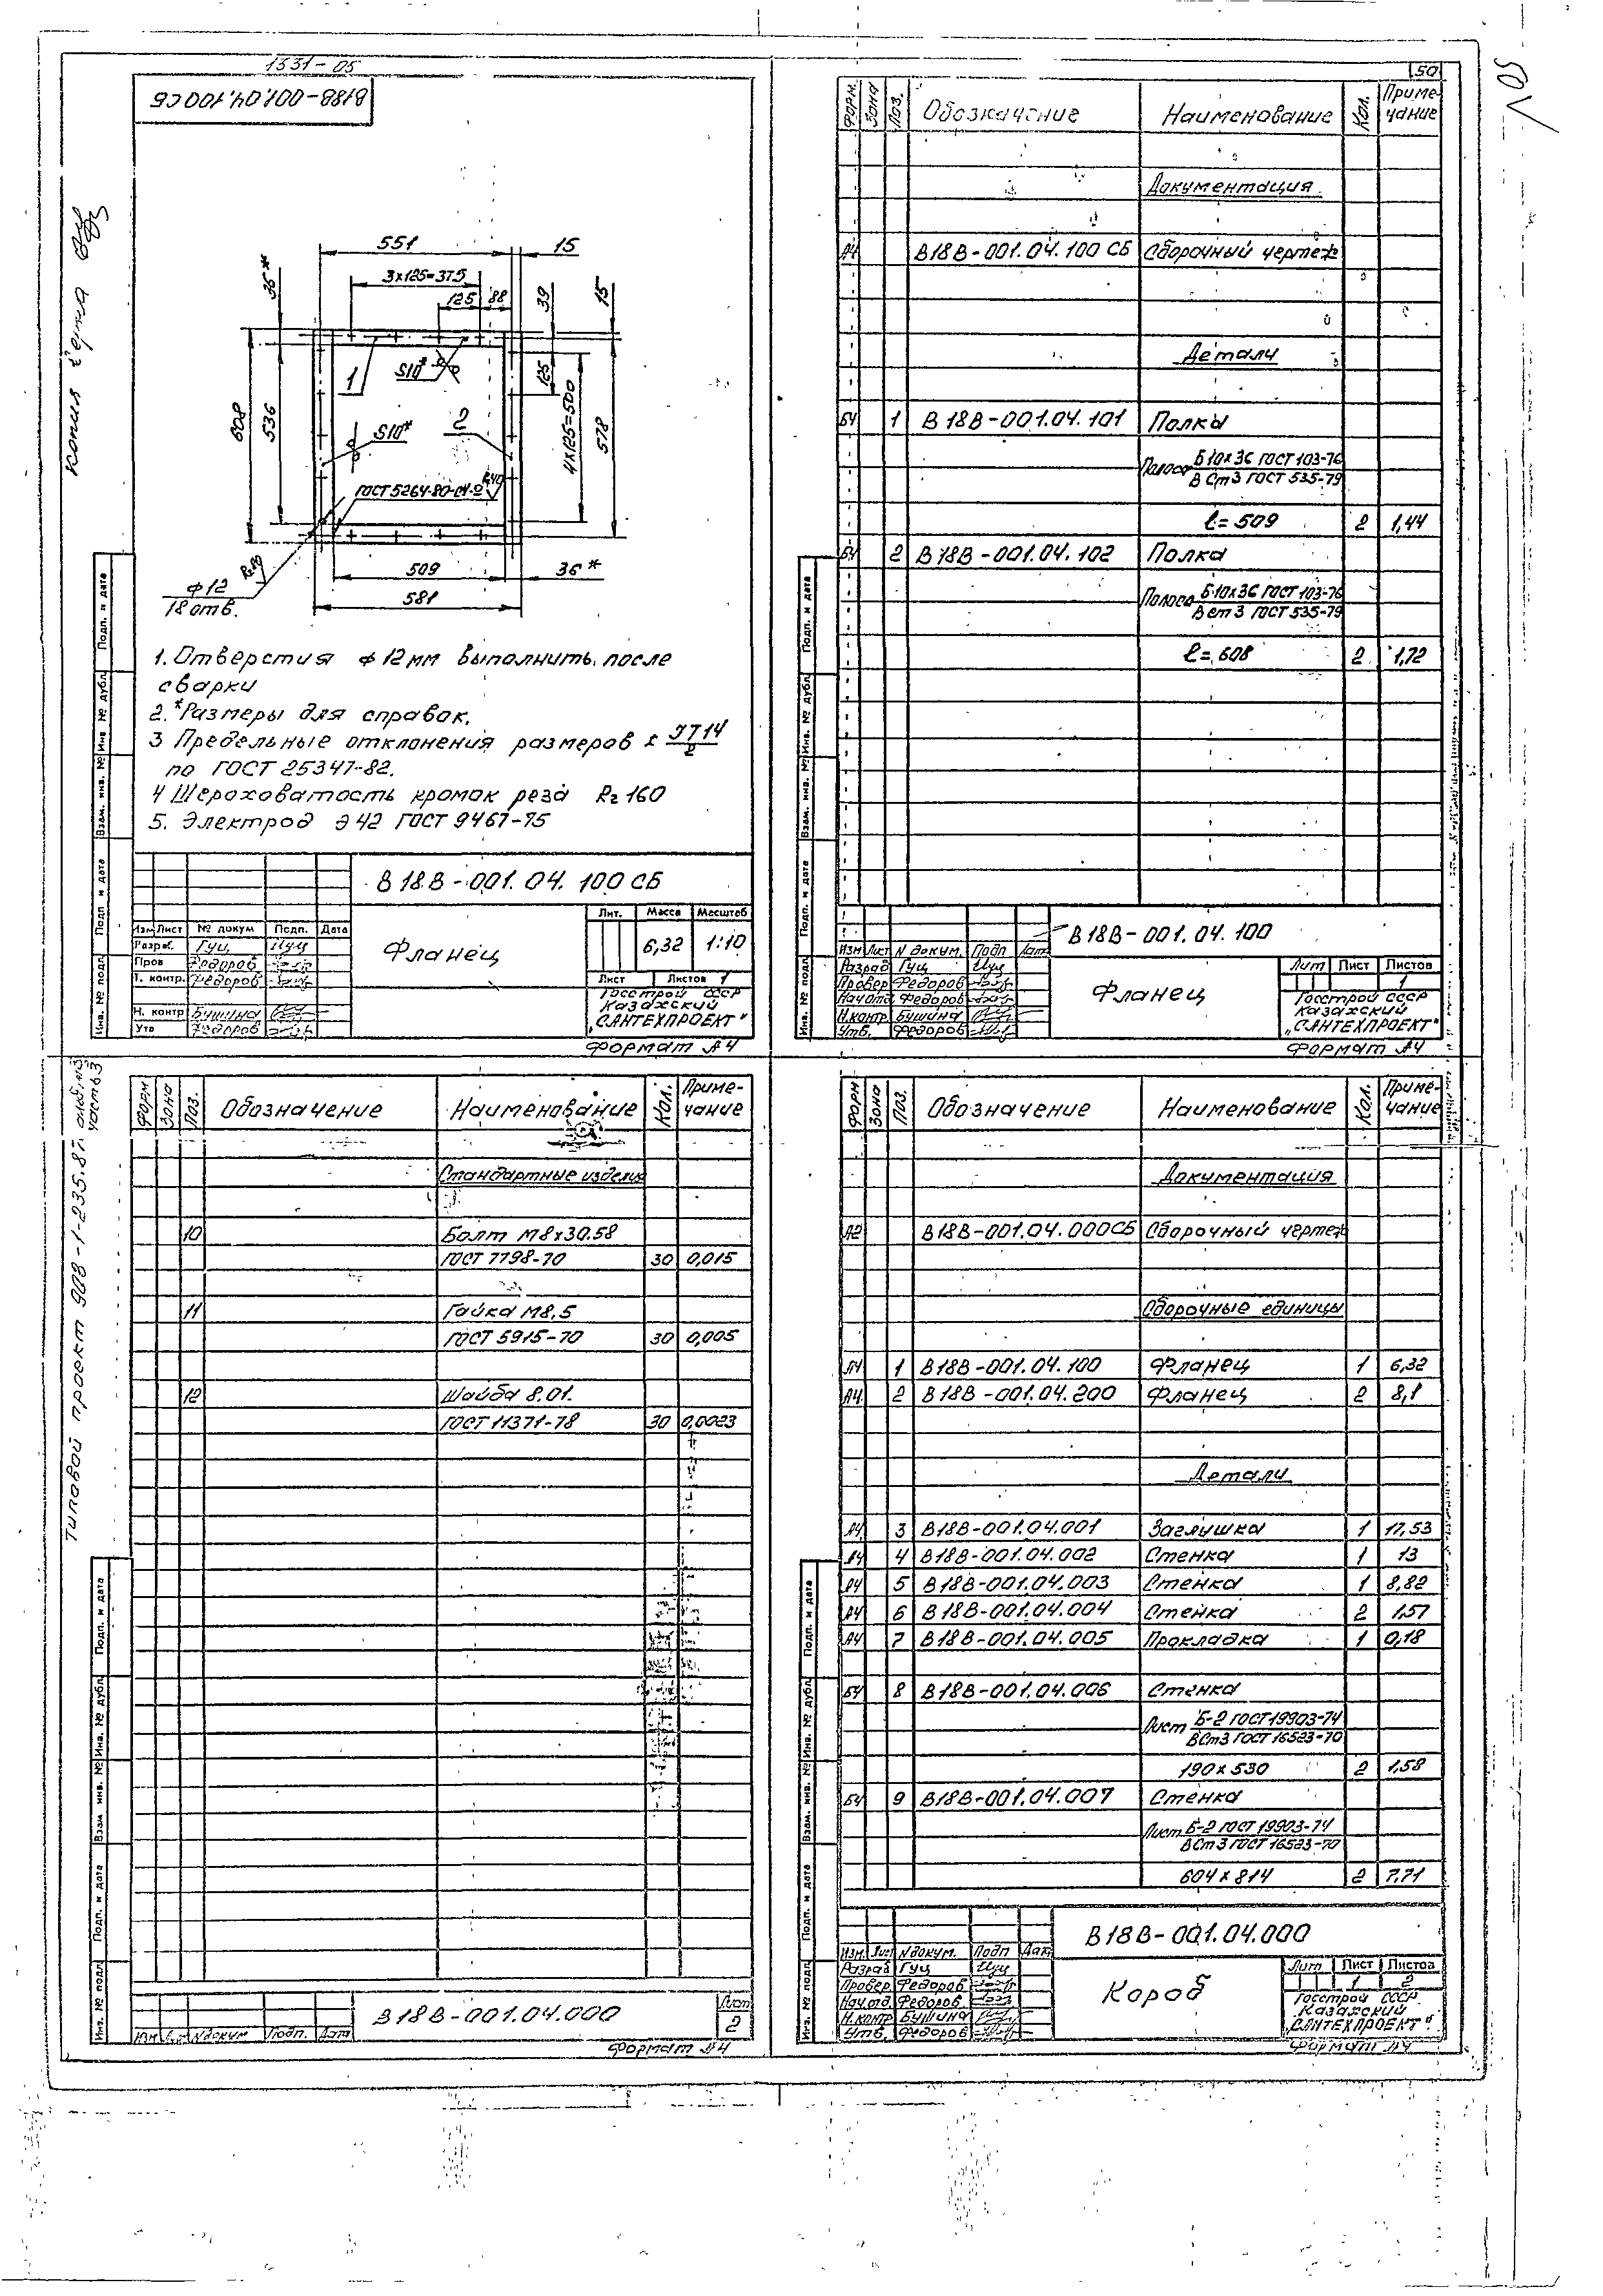 1331-05
50
50
В18В-001.04.100 СБ
копия верна
551
15
36*
3х125=375
125
88
39
15
1
S10*
125
608
536
S10*
2
4х125=500
578
ГОСТ 5264-80-С4-
Rz40
Rz80
509
36*
ф12
581
18 отв.
1. Отверстия ф 12 мм выполнить после
сварки
2.*Размеры для справок.
3 Предельные отклонения размеров ± JT14/2
по ГОСТ 25347-82.
4 Шероховатость кромок реза Rz 160
5. Электрод Э 42 ГОСТ 9467-75
В18В-001.04.100 СБ
Лит. Масса Масштаб
Изм Лист № докум Подп. Дата
Разраб. Гуц
6,32 1:10
Фланец
Пров Федоров
Т. контр. Федоров
Лист Листов 1
Н. контр Бушина
Утв Федоров
Госстрой СССР
Казахский
„САНТЕХПРОЕКТ"
Формат А4
Инв. № подл Подп и дата Взам. инв. № Инв № дубл. Подп. и дата
Форм. Зона Поз. Обозначение Наименование Кол. Приме-
чание
Документация
А4 В18В-001.04.100 СБ Сборочный чертеж
Детали
Б4 1 В18В-001.04.101 Полка
Полоса Б10х36 ГОСТ 103-76
В Ст3 ГОСТ 535-79
ℓ= 509 2 1,44
Б4 2 В18В-001.04.102 Полка
Полоса Б·10х36 ГОСТ 103-76
В ст 3 ГОСТ 535-79
ℓ= 608 2 1,72
В18В-001.04.100
Изм Лист N докум. Подп Дата
Разраб Гуц
Провер Федоров
Нач отд Федоров
Н.контр Бушина
Утв. Федоров
Фланец
Лит Лист Листов
1
Госстрой СССР
Казахский
„САНТЕХПРОЕКТ"
Формат А4
Инв. № подл Подп. и дата Взам. инв. № Инв. № дубл Подп. и дата
Типовой проект 908-1-235.87
часть 3
Форм Зона Поз. Обозначение Наименование Кол. Приме-
чание
Стандартные изделия
10 Болт М8х30.58
ГОСТ 7798-70 30 0,015
11 Гайка М8.5
ГОСТ 5915-70 30 0,005
12 Шайба 8.01.
ГОСТ 11371-78 30 0,0023
В18В-001.04.000
Лист
2
Изм Nдокум Подп. Дата
Формат А4
Инв. № подл Подп. и дата Взам инв. № Инв. № дубл Подп. и дата
Форм Зона Поз. Обозначение Наименование Кол. Приме-
чание
Документация
А2 В18В-001.04.000СБ Сборочный чертеж
Сборочные единицы
А4 1 В18В-001.04.100 Фланец 1 6,32
А4 2 В18В-001.04.200 Фланец 2 8,1
Детали
А4 3 В18В-001.04.001 Заглушка 1 17,53
А4 4 В18В-001.04.002 Стенка 1 13
А4 5 В18В-001.04.003 Стенка 1 8,82
А4 6 В18В-001.04.004 Стенка 2 1,57
А4 7 В18В-001.04.005 Прокладка 1 0,18
Б4 8 В18В-001.04.006 Стенка
Лист Б-2 ГОСТ 19903-74
ВСт3 ГОСТ 16523-70
190 х 530 2 1,58
Б4 9 В18В-001.04.007 Стенка
Лист Б-2 ГОСТ 19903-74
ВСт3 ГОСТ 16523-70
604 х 814 2 7,71
В18В-001.04.000
Изм Лист Nдокум. Подп Дата
Разраб Гуц
Провер Федоров
Нач.отд. Федоров
Н.контр Бушина
Утв. Федоров
Короб
Лит Лист Листов
1 2
Госстрой СССР
Казахский
„САНТЕХПРОЕКТ"
Формат А4
Инв. № подл Подп. и дата Взам. инв. № Инв. № дубл Подп. и дата